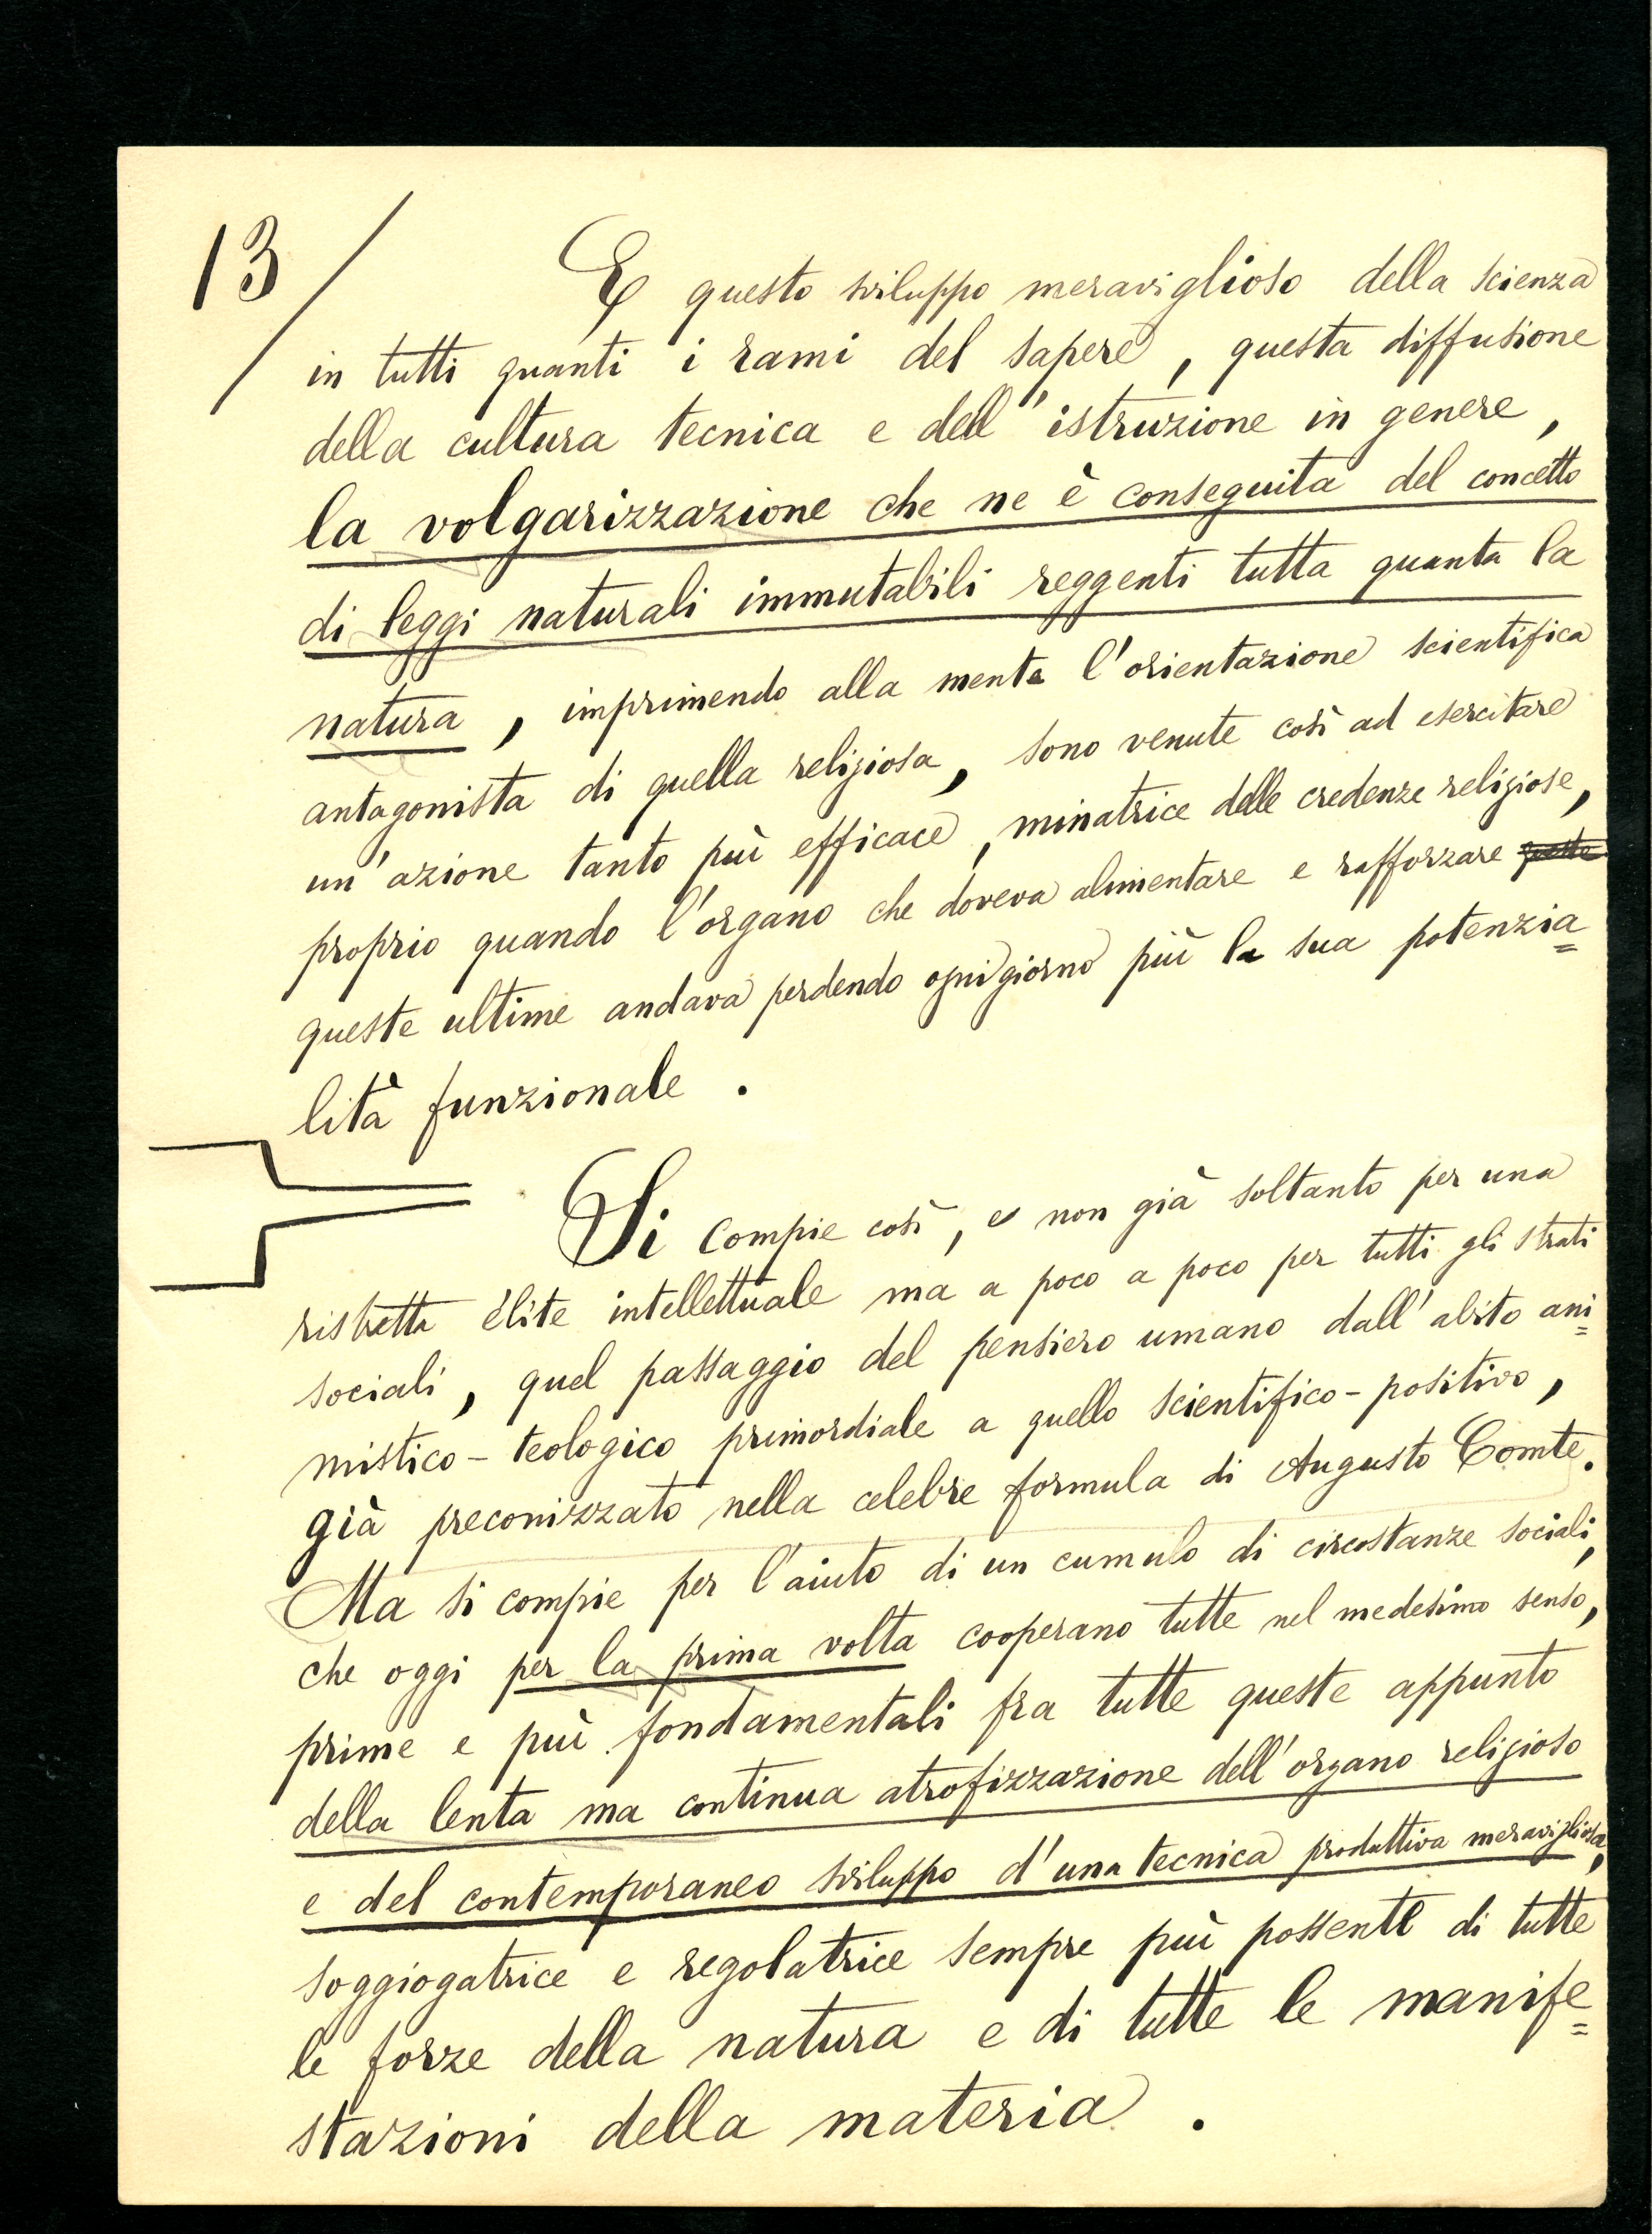 13/
E questo sviluppo meraviglioso della scienza
in tutti quanti i rami del sapere, questa diffusione
della cultura tecnica e dell'istruzione in genere,
la volgarizzazione che ne è conseguita del concetto
di leggi naturali immutabili reggenti tutta quanta la
natura, imprimendo alla mente l'orientazione scientifica
antagonista di quella religiosa, sono venute così ad esercitare
un'azione tanto più efficace, minatrice delle credenze religiose,
proprio quando l'organo che doveva alimentare e rafforzare queste
queste ultime andava perdendo ogni giorno più la sua potenzia=
lità funzionale.
Si compie così, e non già soltanto per una
ristretta élite intellettuale ma a poco a poco per tutti gli strati
sociali, quel passaggio del pensiero umano dall'abito ani=
mistico-teologico primordiale a quello scientifico-positivo,
già preconizzato nella celebre formula di Augusto Comte.
Ma si compie per l'aiuto di un cumulo di circostanze sociali,
che oggi per la prima volta cooperano tutte nel medesimo senso,
prime e più fondamentali fra tutte queste appunto
della lenta ma continua atrofizzazione dell'organo religioso
e del contemporaneo sviluppo d'una tecnica produttiva meravigliosa,
soggiogatrice e regolatrice sempre più possente di tutte
le forze della natura e di tutte le manife=
stazioni della materia.